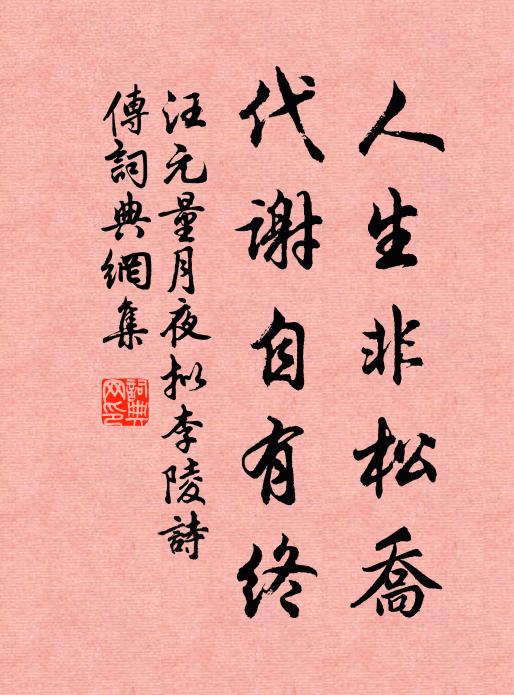 人生非松喬
代謝自有終
汪元量月夜拟李陵詩
傳詞典網集
詞典网印